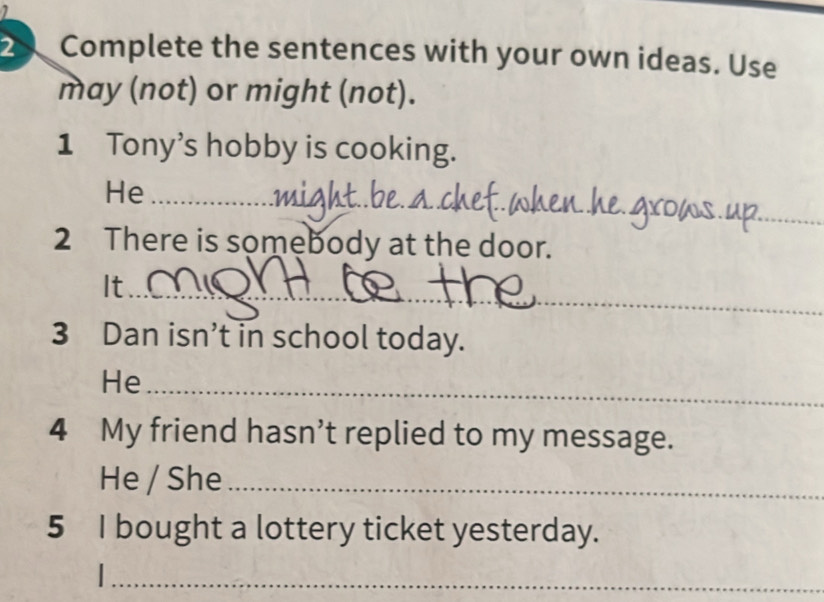 2 Complete the sentences with your own ideas. Use
may (not) or might (not).
1 Tony's hobby is cooking.
He might be a chef when he grows up
2 There is somebody at the door.
It might be the
3 Dan isn't in school today.
He
4 My friend hasn't replied to my message.
He / She
5 I bought a lottery ticket yesterday.
I